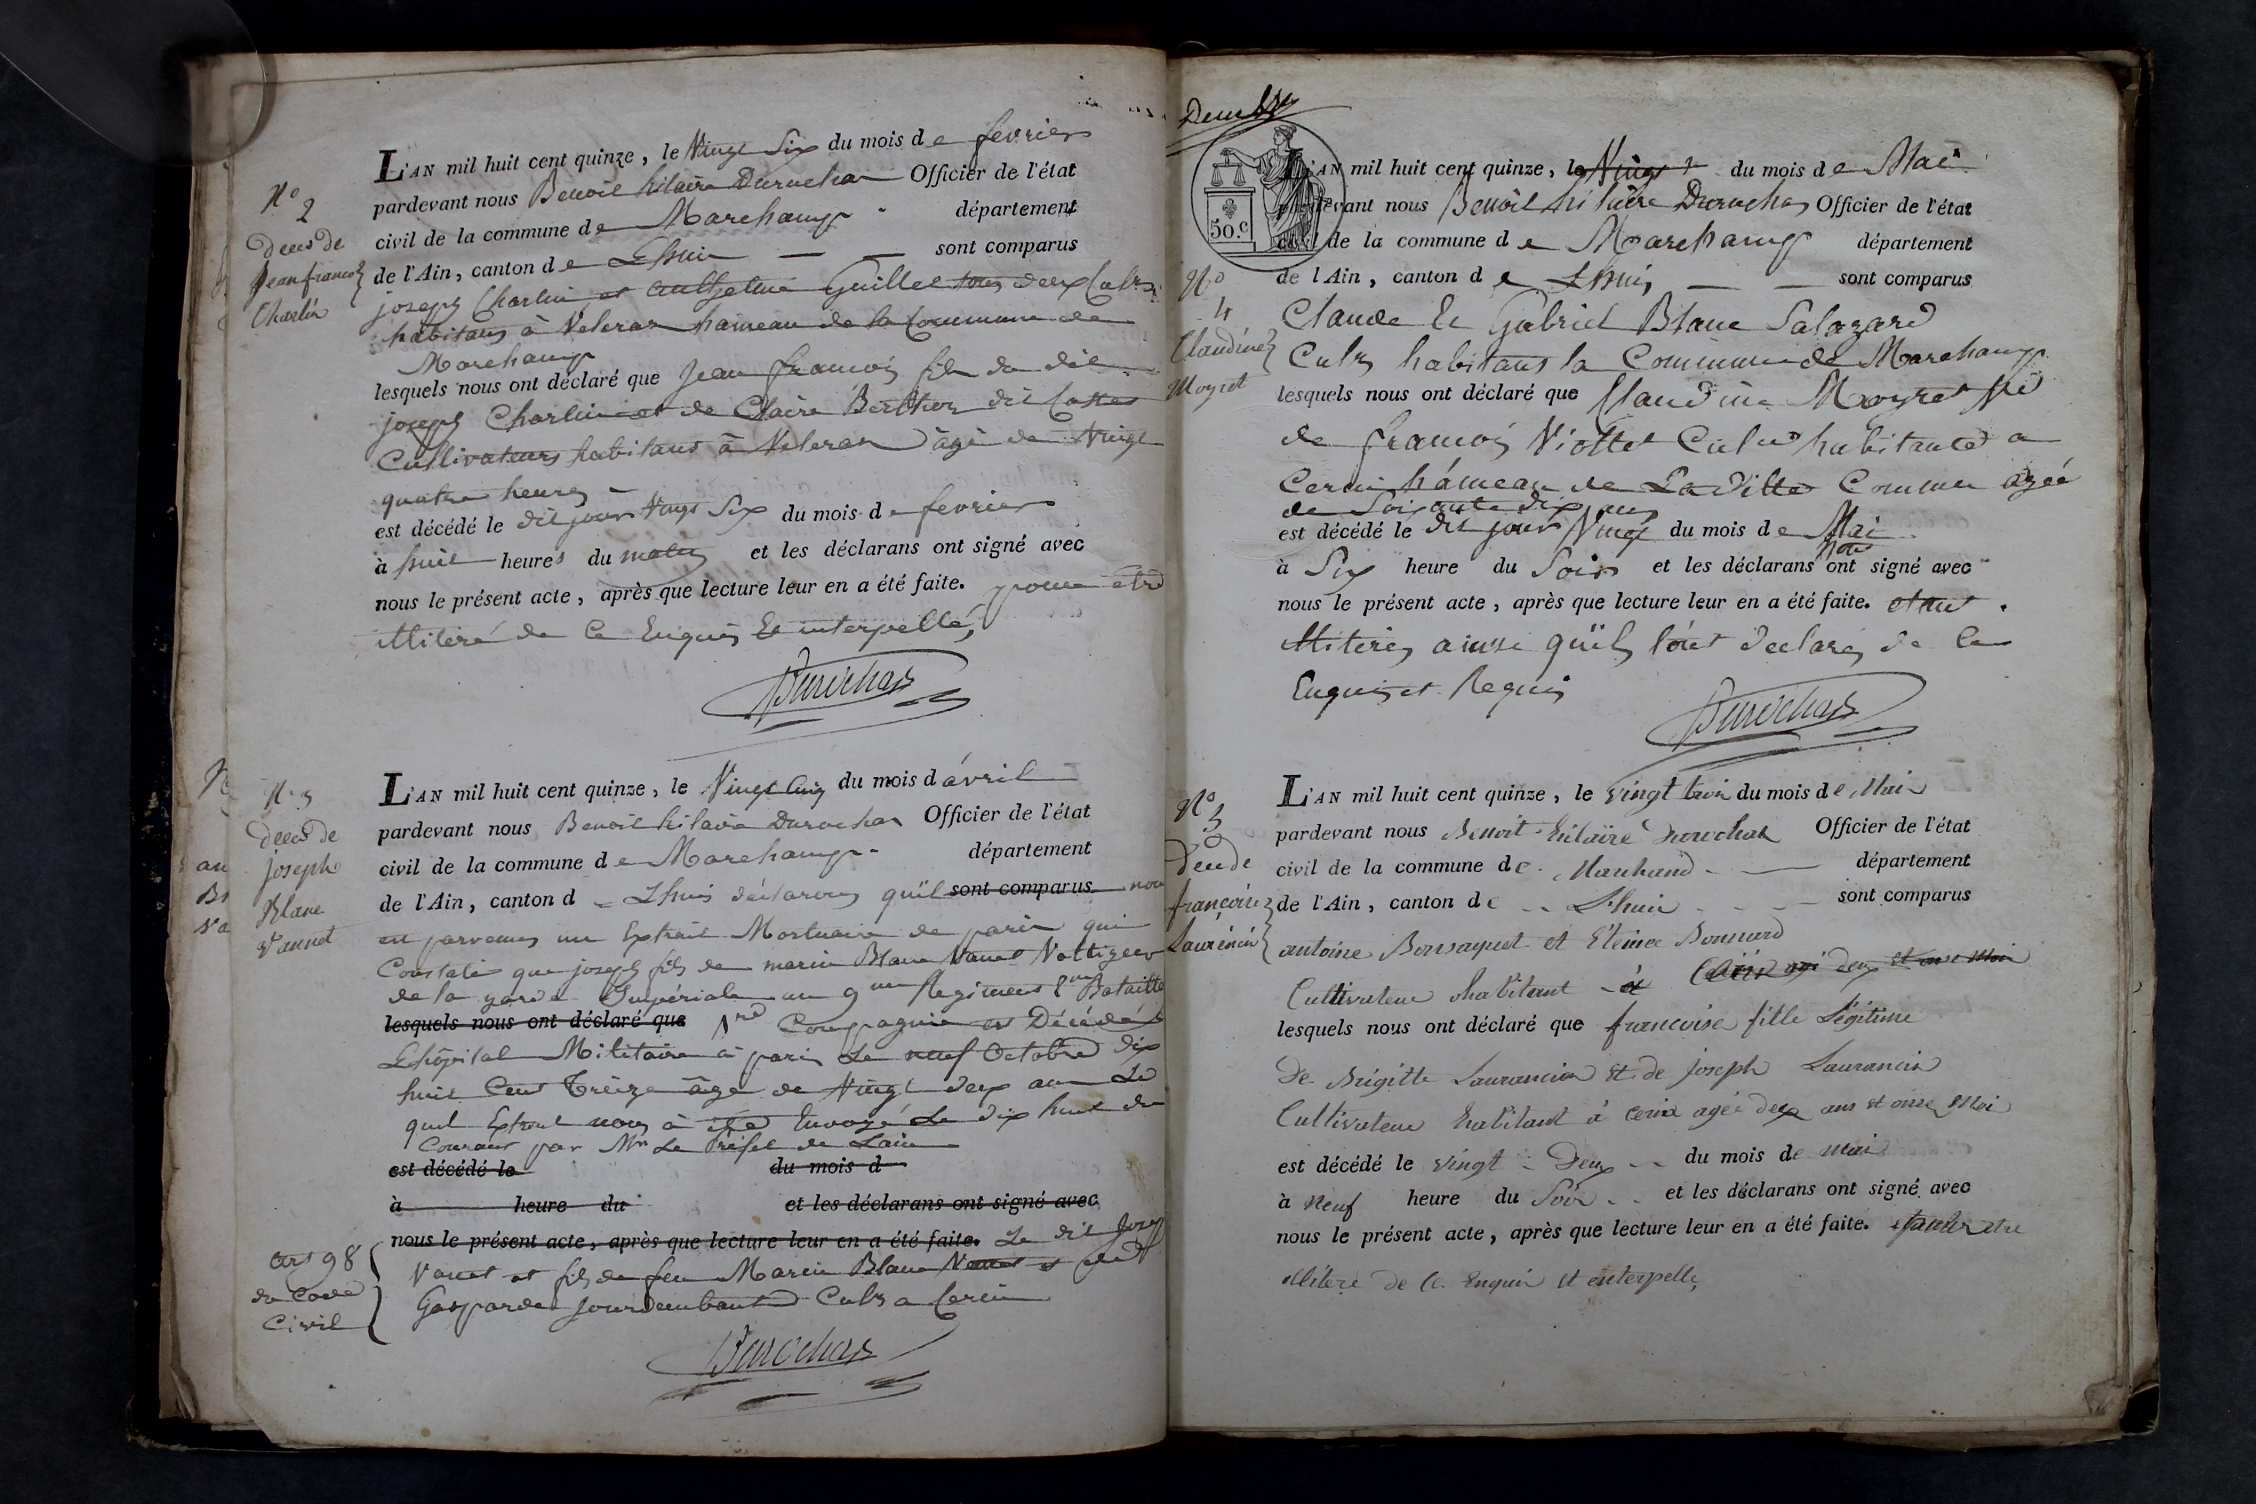 N° 2
Deces de
Jean francois
Charlin
L'AN mil huit cent quinze, le Vingt Six du mois de fevrier
pardevant nous Benoit hilaire Durochat Officier de l'état
civil de la commune de Marchamp département
de l'Ain, canton de Lhuis sont comparus
joseph Charlin et anthelme Guillet tous deux Cultrs
habitans à Veleras hameau de la Commune de
Marchamp
lesquels nous ont déclaré que Jean francois fils du dit
joseph Charlin et de Claire Berthet dit
Cultivateurs habitans à Veleras âgé de Vingt
quatre heures
est décédé le dit jour Vingt Six du mois de fevrier
à huit heures du matin et les déclarans ont signé avec
nous le présent acte, après que lecture leur en a été faite. pour etre
illiteré de Ce Enquis Et interpellé,
Durochat
N° 3
Deces de
joseph
Blanc
Vannet
L'AN mil huit cent quinze, le Vingt Cinq du mois d'avril
pardevant nous Benoit hilaire Durochat Officier de l'état
civil de la commune de Marchamp département
de l'Ain, canton de Lhuis déclarons qu'il sont comparus nous
est parvenus un Extrait Mortuaire de paris qui
Constate que joseph fils de marin Blanc Vanet Voltigeur
de la garde Impériale au 9me Regiment 2me Bataille
lesquels nous ont déclaré que 1re Compagnie est Décédé à
L'hôpital Militaire à paris Le neuf Octobre dix
huit Cent Treize âgé de Vingt deux ans Le
quel Extrait nous à été Envoyé Le dix huit du
Courant par Mr Le Préfet de Lain
est décédé le du mois d
à heure du et les déclarans ont signé avec
nous le présent acte, après que lecture leur en a été faite. Le dit Joseph
Vanet et fils de feu Marin Blanc Vanet et de
Gasparde Cultr a Cerin
art 98
du Code
Civil
Durochat
50.c
N° 4
Claudine
Moyret
L'AN mil huit cent quinze, le Vingt du mois de Mai
pardevant nous Benoit hilaire Durochat Officier de l'état
civil de la commune de Marchamp département
de l'Ain, canton de Lhuis sont comparus
Claude Et Gabriel Blanc Salazard
Cultrs habitans la Commune de Marchamp
lesquels nous ont déclaré que Claudine Moyret Ve
de francois Viottet Cultr habitante a
Cerin hameau de La ditte Commune agée
de Soixante dix ans
est décédé le dit jour Vingt du mois de Mai
à Six heure du Soir et les déclarans non ont signé avec
nous le présent acte, après que lecture leur en a été faite. etant
illiterés ainsi qu'ils l'ont declarés de Ce
Enquis et Requis
Durochat
N° 5
francoise
Laurencin
L'AN mil huit cent quinze, le vingt trois du mois de Mai
pardevant nous Benoit hilaire Durochat Officier de l'état
civil de la commune de Marchand département
de l'Ain, canton de Lhuis sont comparus
antoine Bonsaquet et Etienne Bonnard
Cultivateur habitant à Cerin agé deux et onze Moi
lesquels nous ont déclaré que francoise fille Légitime
De Brigitte Laurancin Et de joseph Laurancin
Cultivateur habitant à Cerin agée deux ans et onze Moi
est décédé le vingt Deux du mois de mai
à neuf heure du Soir et les déclarans ont signé avec
nous le présent acte, après que lecture leur en a été faite. etre
illitere de Ce Enquis et enterpelle